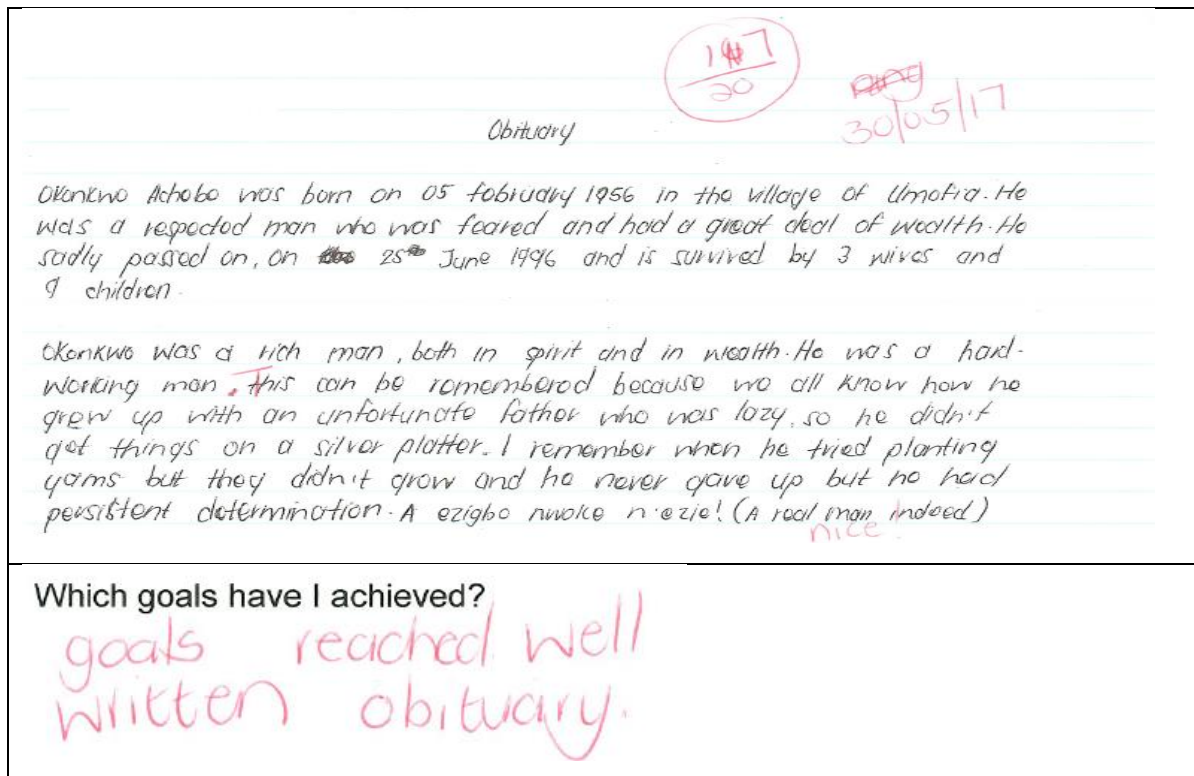 17
20
30/05/17
Obituary
Okonkwo Achebe was born on 05 february 1956 in the village of Umofia. He
was a respected man who was feared and had a great deal of wealth. He
sadly passed on, on 25th June 1996 and is survived by 3 wives and
9 children.
Okonkwo was a rich man, both in spirit and in wealth. He was a hard-
working man. This can be remembered because we all know how he
grew up with an unfortunate father who was lazy, so he didn't
get things on a silver platter. I remember when he tried planting
yams but they didn't grow and he never gave up but he had
persistent determination. A ezigbo nwoke n'ezie! (A real man indeed)
nice!
Which goals have I achieved?
goals reached well
written obituary.